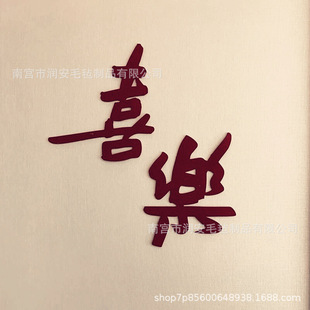 南宫市润安毛毡制品有限公司
喜
樂
南宫市润安毛毡制品有限公司
shop7p85600648938.1688.com